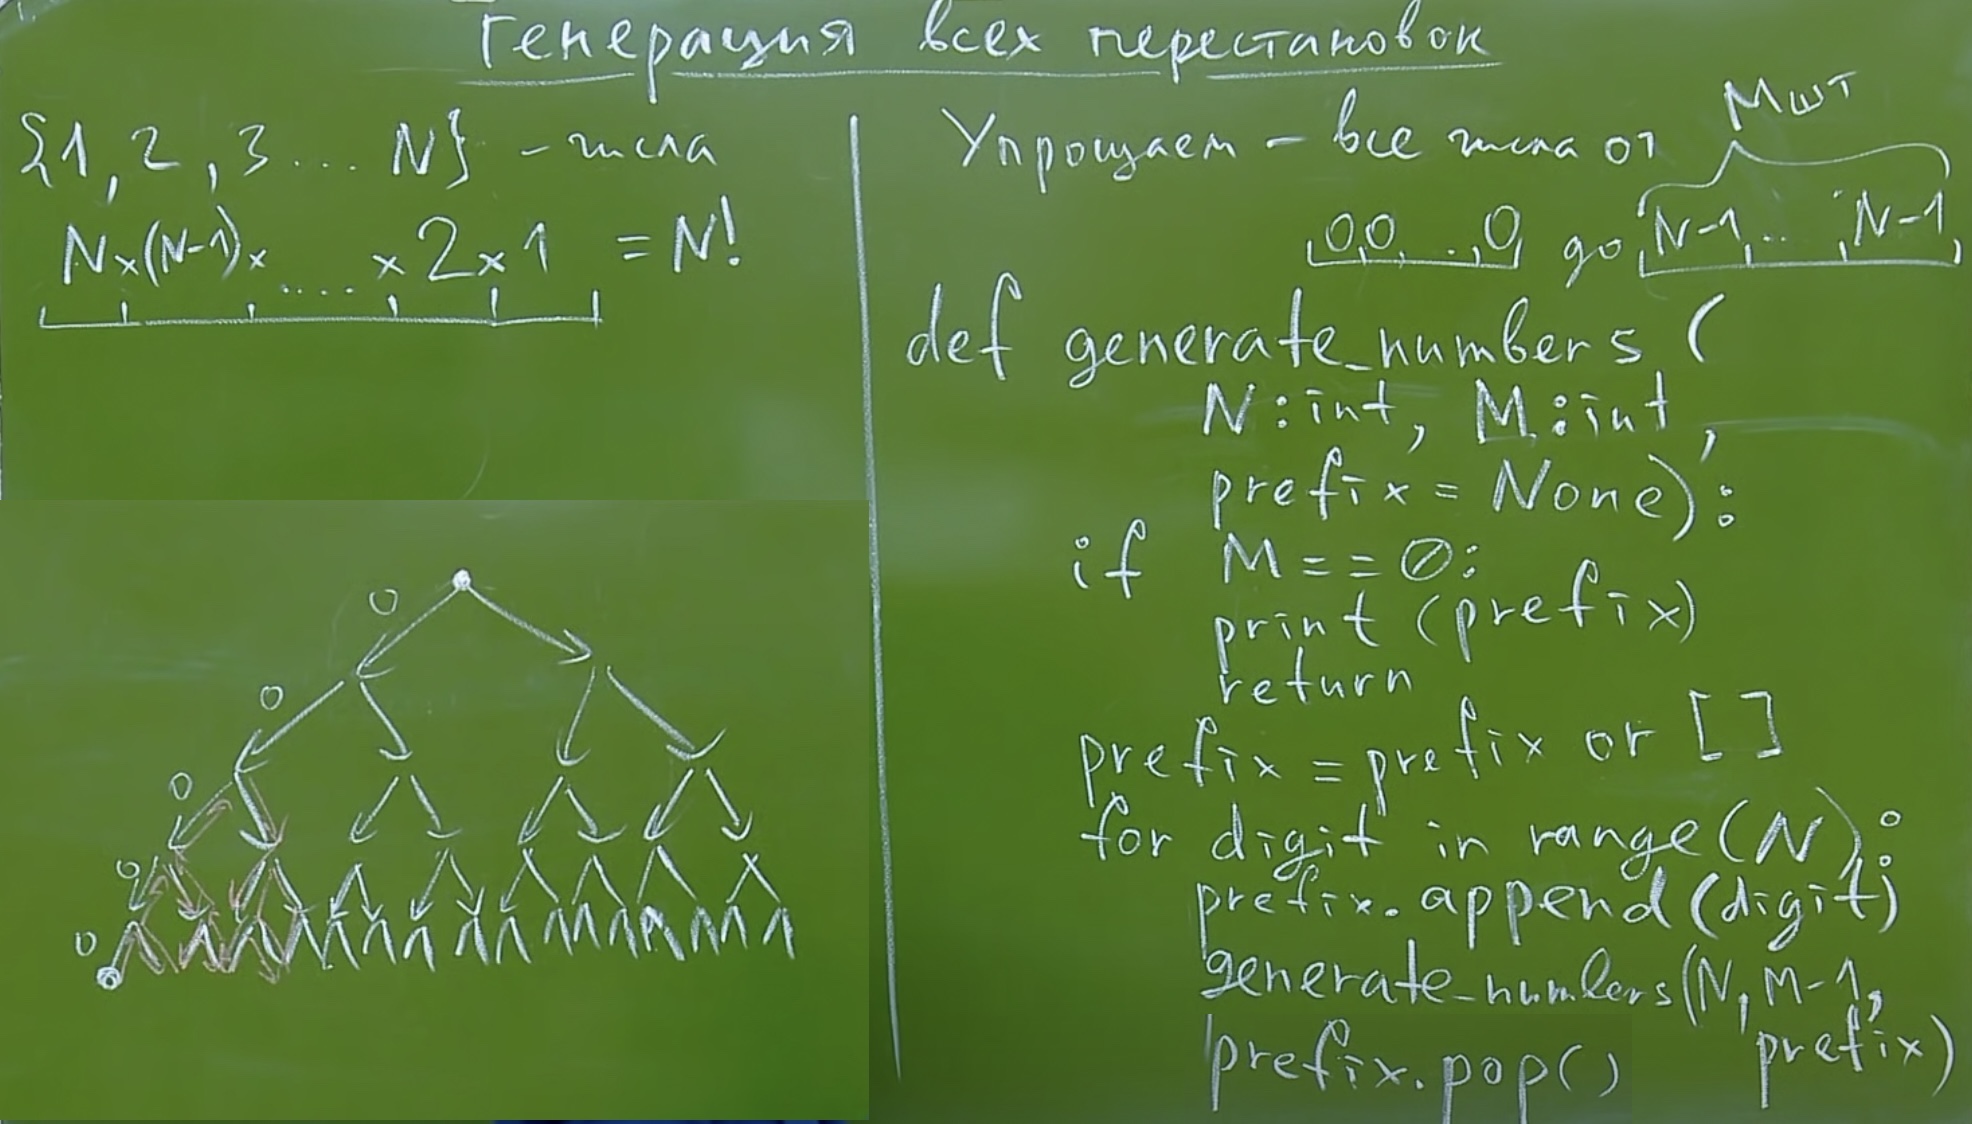 Генерация всех перестановок
{1, 2, 3 ... N} - числа
N×(N-1)× .... ×2×1 = N!
0
0
0
0
0
Упрощаем - все числа от
M шт
0,0, ..., 0 до N-1, ... , N-1
def generate_numbers (
N:int, M:int,
prefix = None):
if M == 0:
print (prefix)
return
prefix = prefix or []
for digit in range(N):
prefix.append(digit)
generate_numbers(N, M-1,
prefix)
prefix.pop()